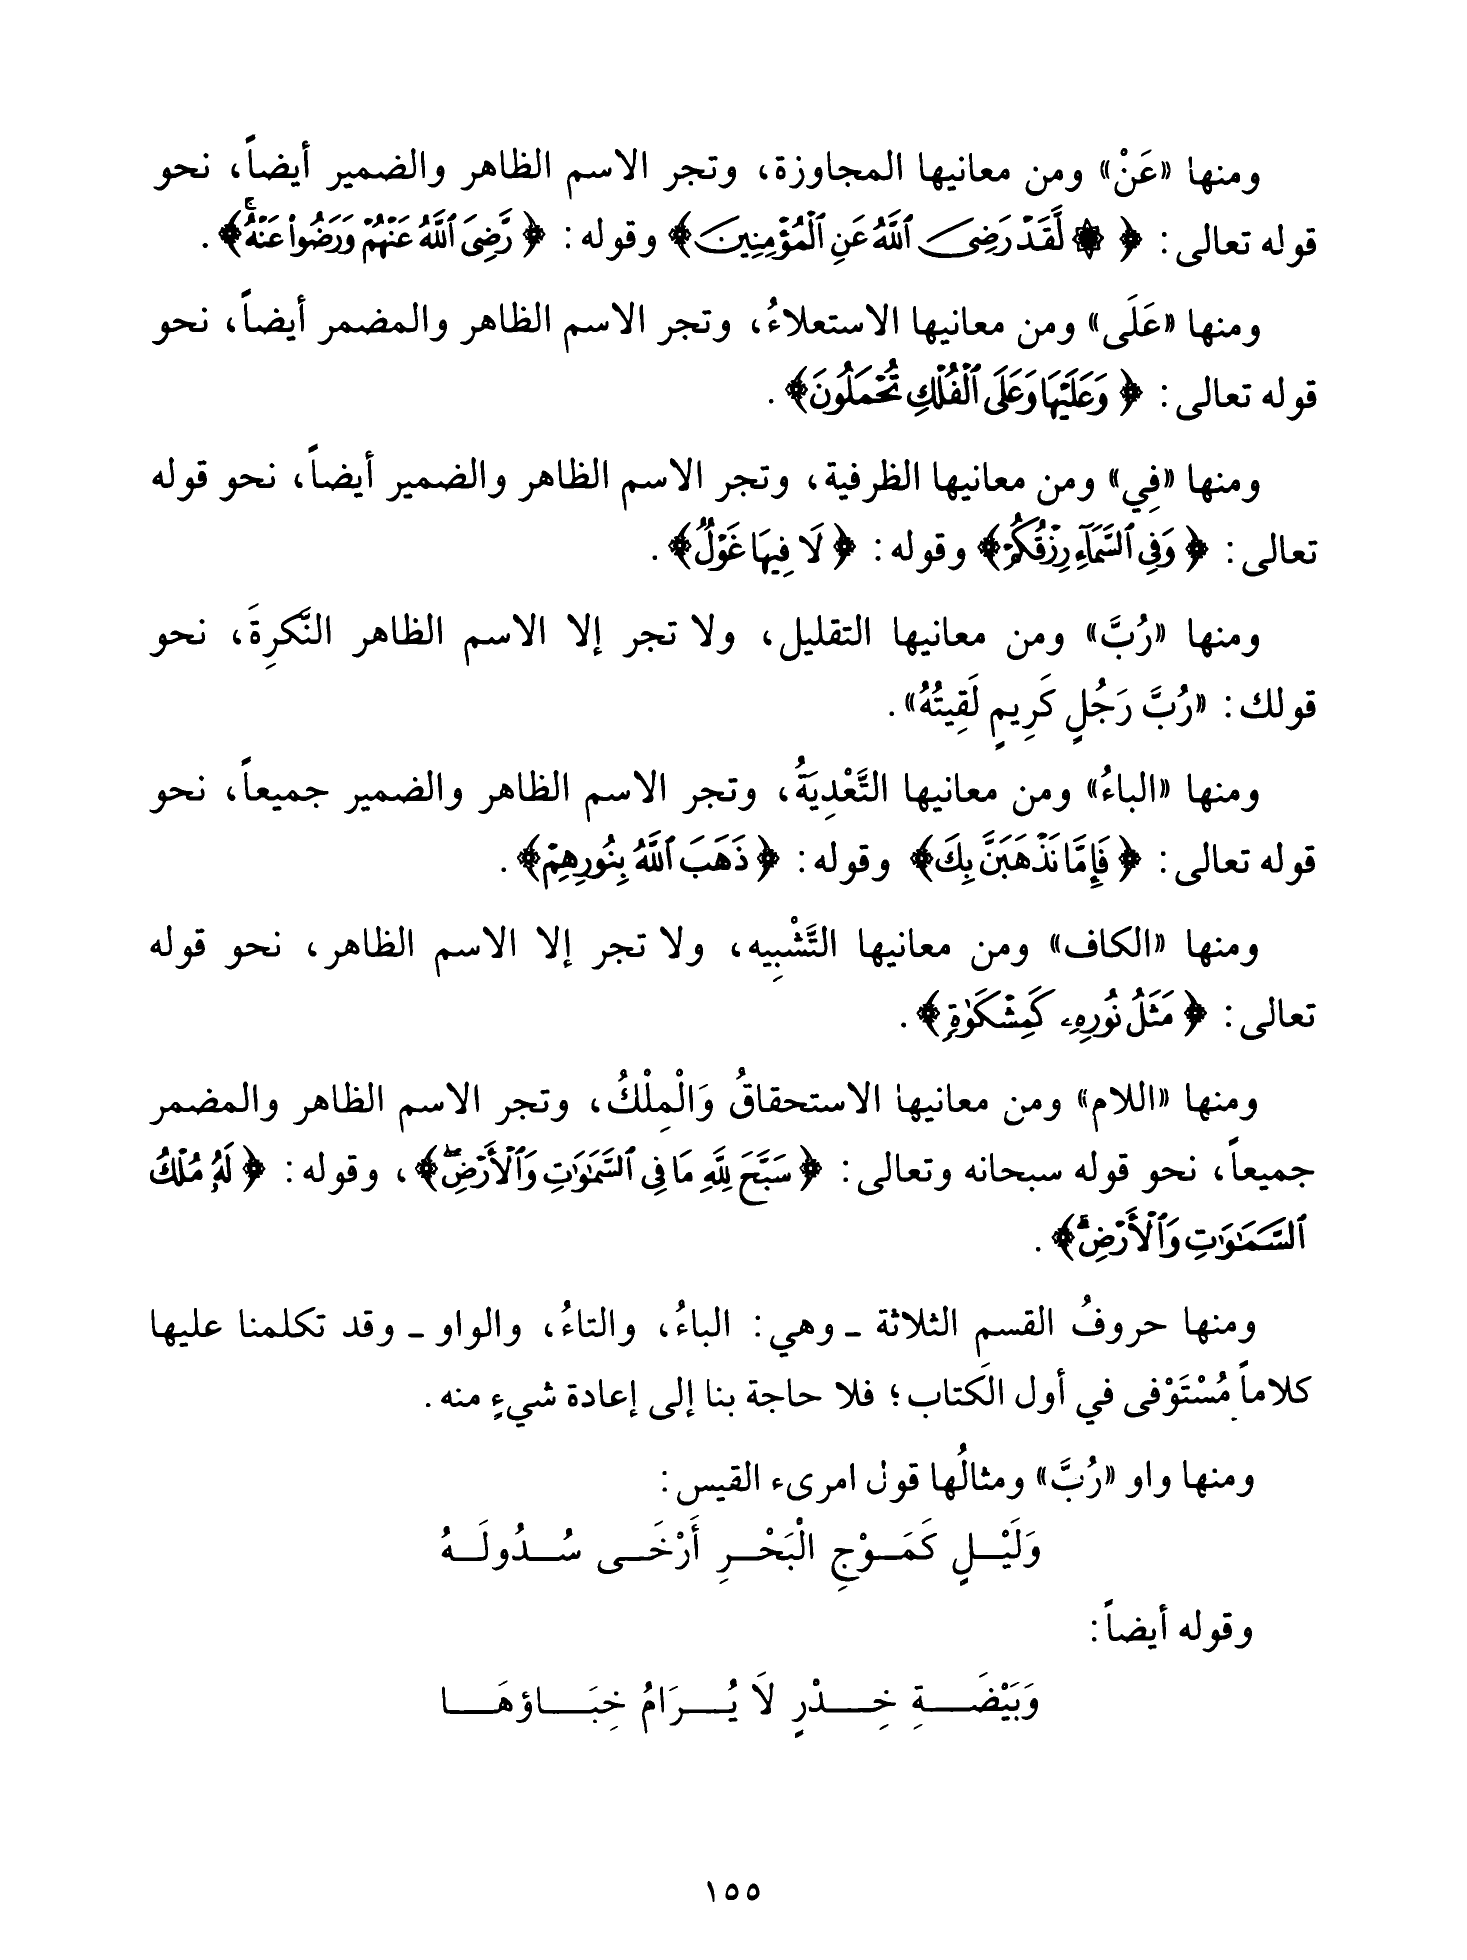 ومنها «عَنْ» ومن معانيها المجاوزة، وتجر الاسم الظاهر والضمير أيضاً، نحو
قوله تعالى: ﴿ ۞ لَّقَدْ رَضِىَ ٱللَّهُ عَنِ ٱلْمُؤْمِنِينَ﴾ وقوله: ﴿ رَّضِىَ ٱللَّهُ عَنْهُمْ وَرَضُوا۟ عَنْهُۚ﴾.
ومنها «عَلَى» ومن معانيها الاستعلاءُ، وتجر الاسم الظاهر والمضمر أيضاً، نحو
قوله تعالى: ﴿ وَعَلَيْهَا وَعَلَى ٱلْفُلْكِ تُحْمَلُونَ﴾.
ومنها «فِي» ومن معانيها الظرفية، وتجر الاسم الظاهر والضمير أيضاً، نحو قوله
تعالى: ﴿ وَفِى ٱلسَّمَآءِ رِزْقُكُمْ﴾ وقوله: ﴿ لَا فِيهَا غَوْلٌ﴾.
ومنها «رُبَّ» ومن معانيها التقليل، ولا تجر إلا الاسم الظاهر النَّكرِةَ، نحو
قولك: «رُبَّ رَجُلٍ كَرِيمٍ لَقِيتُهُ».
ومنها «الباءُ» ومن معانيها التَّعْدِيَةُ، وتجر الاسم الظاهر والضمير جميعاً، نحو
قوله تعالى: ﴿ فَإِمَّا نَذْهَبَنَّ بِكَ﴾ وقوله: ﴿ ذَهَبَ ٱللَّهُ بِنُورِهِمْ﴾.
ومنها «الكاف» ومن معانيها التَّشْبِيه، ولا تجر إلا الاسم الظاهر، نحو قوله
تعالى: ﴿ مَثَلُ نُورِهِۦ كَمِشْكَوٰةٍ﴾.
ومنها «اللام» ومن معانيها الاستحقاقُ وَالْمِلْكُ، وتجر الاسم الظاهر والمضمر
جميعاً، نحو قوله سبحانه وتعالى: ﴿ سَبَّحَ لِلَّهِ مَا فِى ٱلسَّمَٰوَٰتِ وَٱلْأَرْضِۖ﴾، وقوله: ﴿ لَهُۥ مُلْكُ
ٱلسَّمَٰوَٰتِ وَٱلْأَرْضِۚ﴾.
ومنها حروفُ القسم الثلاثة ـ وهي: الباءُ، والتاءُ، والواو ـ وقد تكلمنا عليها
كلاماً مُسْتَوْفى في أول الكتاب؛ فلا حاجة بنا إلى إعادة شيءٍ منه.
ومنها واو «رُبَّ» ومثالُها قول امرىء القيس:
وَلَيْـلٍ كَمَـوْجِ الْبَحْـرِ أَرْخَـى سُـدُولَـهُ
وقوله أيضاً:
وَبَيْضَـــةِ خِـــدْرٍ لَا يُـــرَامُ خِبَـــاؤهَـــا
١٥٥